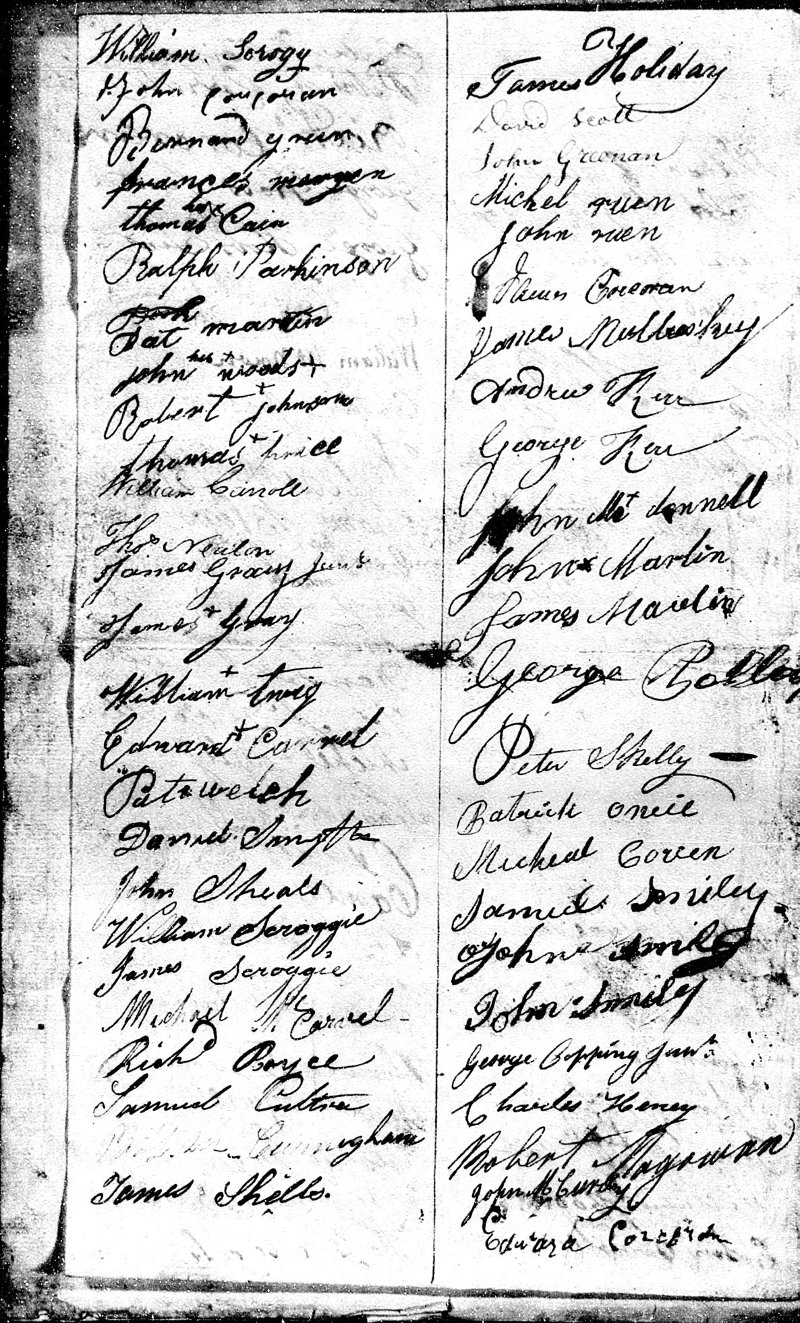 William Scrogy
John Corcoran
Bernard green
frances morgen
thomas his x Cain
Ralph Parkinson
Pat martin
John his + woods +
Robert + Johnson
thomas + price
William Carroll
Thos. Newlon
James Gray Junr
James + Gray
William + twig
Edward + Carmel
Pat x welch
Daniel Smyth
John Sheals
William Scroggie
James Scroggie
Michael Mc Carvel
Richd Boyce
Samuel Cultra
Cunnigham
James Shells.
James Holiday
David Scott
John Greenan
Michel ruen
John ruen
Corcoran
James
Andrew Kerr
George Kerr
John Mc + donnell
John x Martin
James Martin
George
Peter Shelly
Patrick Oneil
Micheal Green
Samuel Smiley
John Smiley
John Smiley
George Popping Junr
Charles Heney
Robert Magowan
John McCurdy
Edward Corcoran